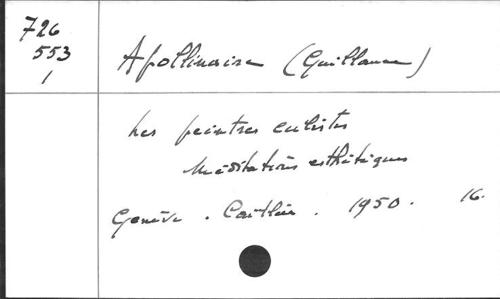 726
553
1
Apollinaire (Guillaume)
Les peintres cubistes
Méditations esthétiques
Genève. Cailler. 1950. 16.